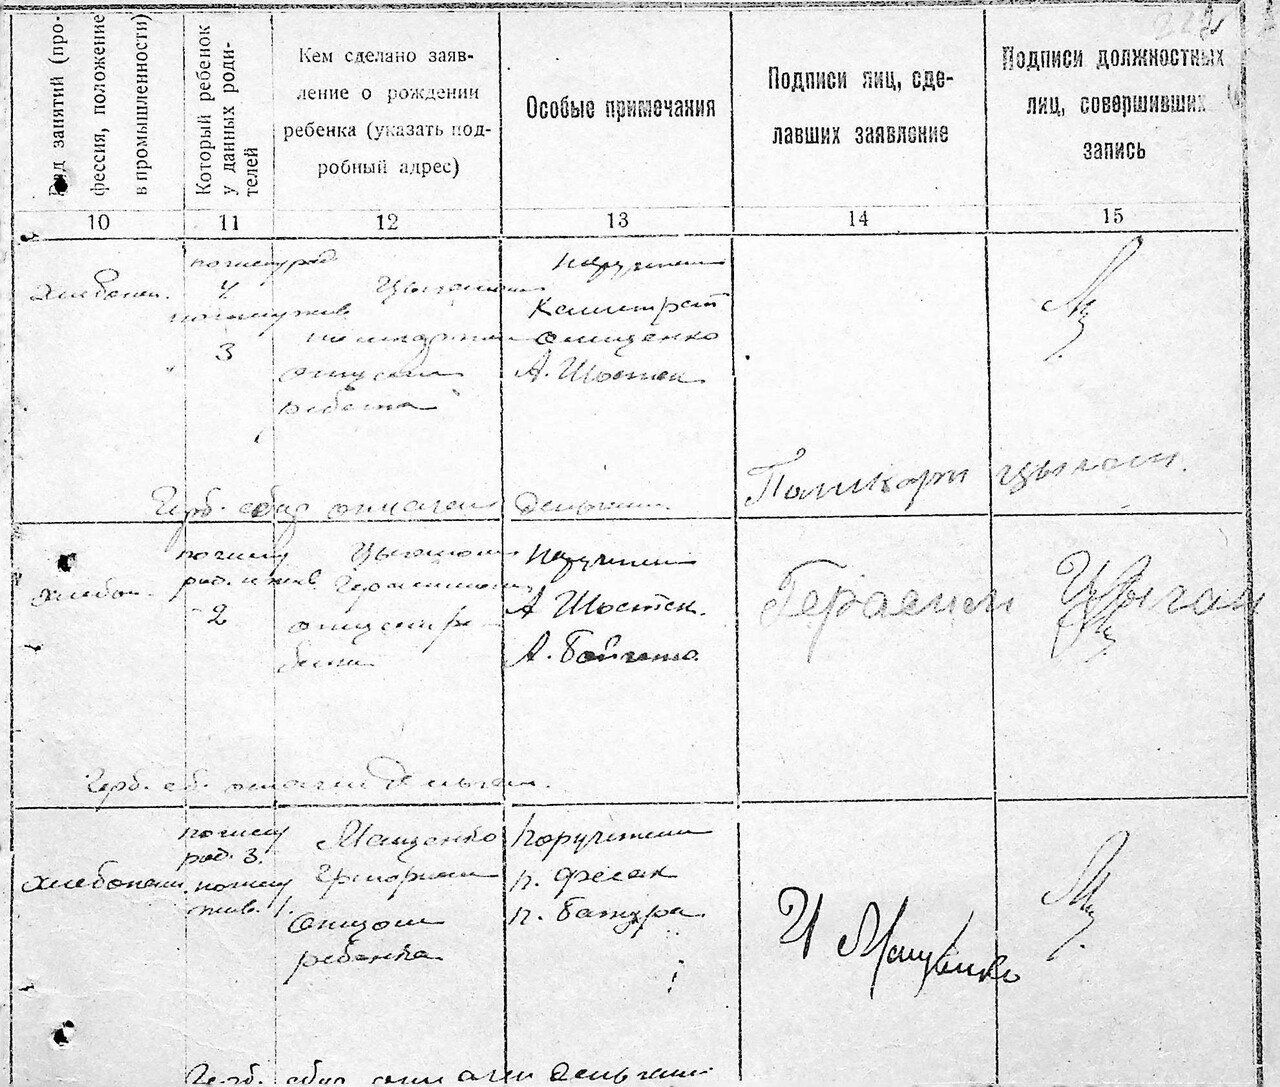 Род занятий (про-
фессия, положение
в промышленности)
Который ребенок
у данных роди-
телей
Кем сделано заяв-
ление о рождении
ребенка (указать под-
робный адрес)
Особые примечания
Подписи лиц, сде-
лавших заявление
Подписи должностных
лиц, совершивших
запись
10
11
12
13
14
15
хлебопаш.
по числу рад
4
по числу жив
3
Цыганом
отцем
ребенка
Поручители
Онищенко
А. Шостак
Герб. сбор оплачен деньгами.
Цыган.
хлебоп.
по числу
рад. и жив
2
Цыганом
Герасимом
отцем ре-
бенка
Поручители
А Шостак.
А. Бойченко
Герасим Цыган
Герб. сб. оплачен деньгам.
хлебопаш.
по числу
рад. 3.
по числу
жив. 1.
Мащенко
Григорием
отцом
ребенка
Поручители
п. Фесак
п. Бажура
Мащенко
Герб. сбор оплачен деньгами